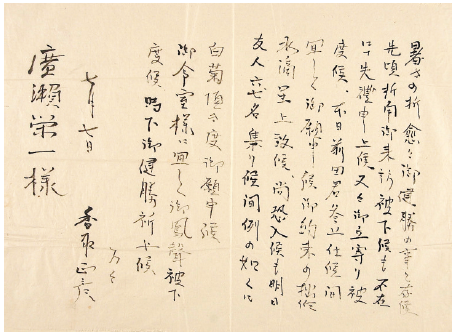 暑さの折愈々御健勝の事と存候
先頃折角御来訪被下候も不在
にて失禮申上候又々御立寄り被
度候、本日前田君参上仕候間
宜しく御願申候御約束の拙
呈上致候尚恐入候も明日
友人六七名集り候間例の如くに
白菊頂き度御願申候
御令室様に宜しく御鳳聲被下
度候時下御健勝祈上候、
七月七日
香取正彦
廣瀬栄一様